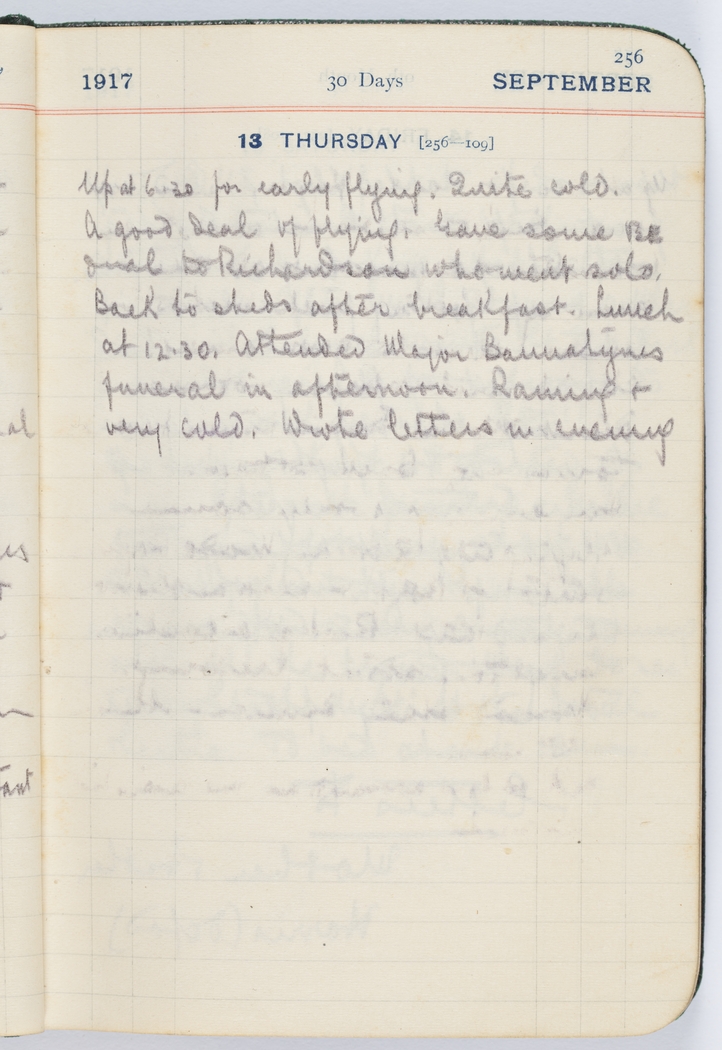 256
1917 30 Days SEPTEMBER
13 THURSDAY [256—109]
Up at 6.30 for early flying. Quite cold.
A good deal of flying. Gave some BE
dual to Richardson who went solo.
Back to sheds after breakfast. Lunch
at 12.30. Attended Major Bannatynes
funeral in afternoon. Raining +
very cold. Wrote letters in evening